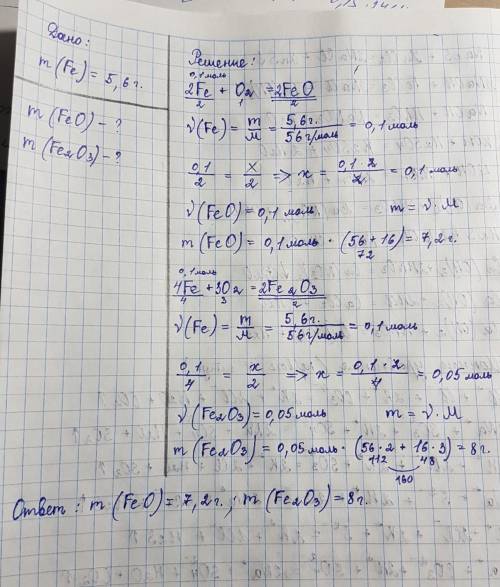 Дано:
m (Fe) = 5,6 г.
m (FeO) - ?
m (Fe2O3) - ?
Решение:
0,1 моль
2Fe + O2 = 2FeO
2 1 2
ν (Fe) = m/M = 5,6 г./56 г/моль = 0,1 моль
0,1/2 = x/2 => x = 0,1 · 2/2 = 0,1 моль
ν (FeO) = 0,1 моль. m = ν · M
m (FeO) = 0,1 моль · (56 + 16) = 7,2 г.
72
0,1 моль
4Fe + 3O2 = 2Fe2O3
4 3 2
ν (Fe) = m/M = 5,6 г./56 г/моль = 0,1 моль
0,1/4 = x/2 => x = 0,1 · 2/4 = 0,05 моль
ν (Fe2O3) = 0,05 моль m = ν · M
m (Fe2O3) = 0,05 моль · (56 · 2 + 16 · 3) = 8 г.
112 48
160
Ответ: m (FeO) = 7,2 г.; m (Fe2O3) = 8 г.